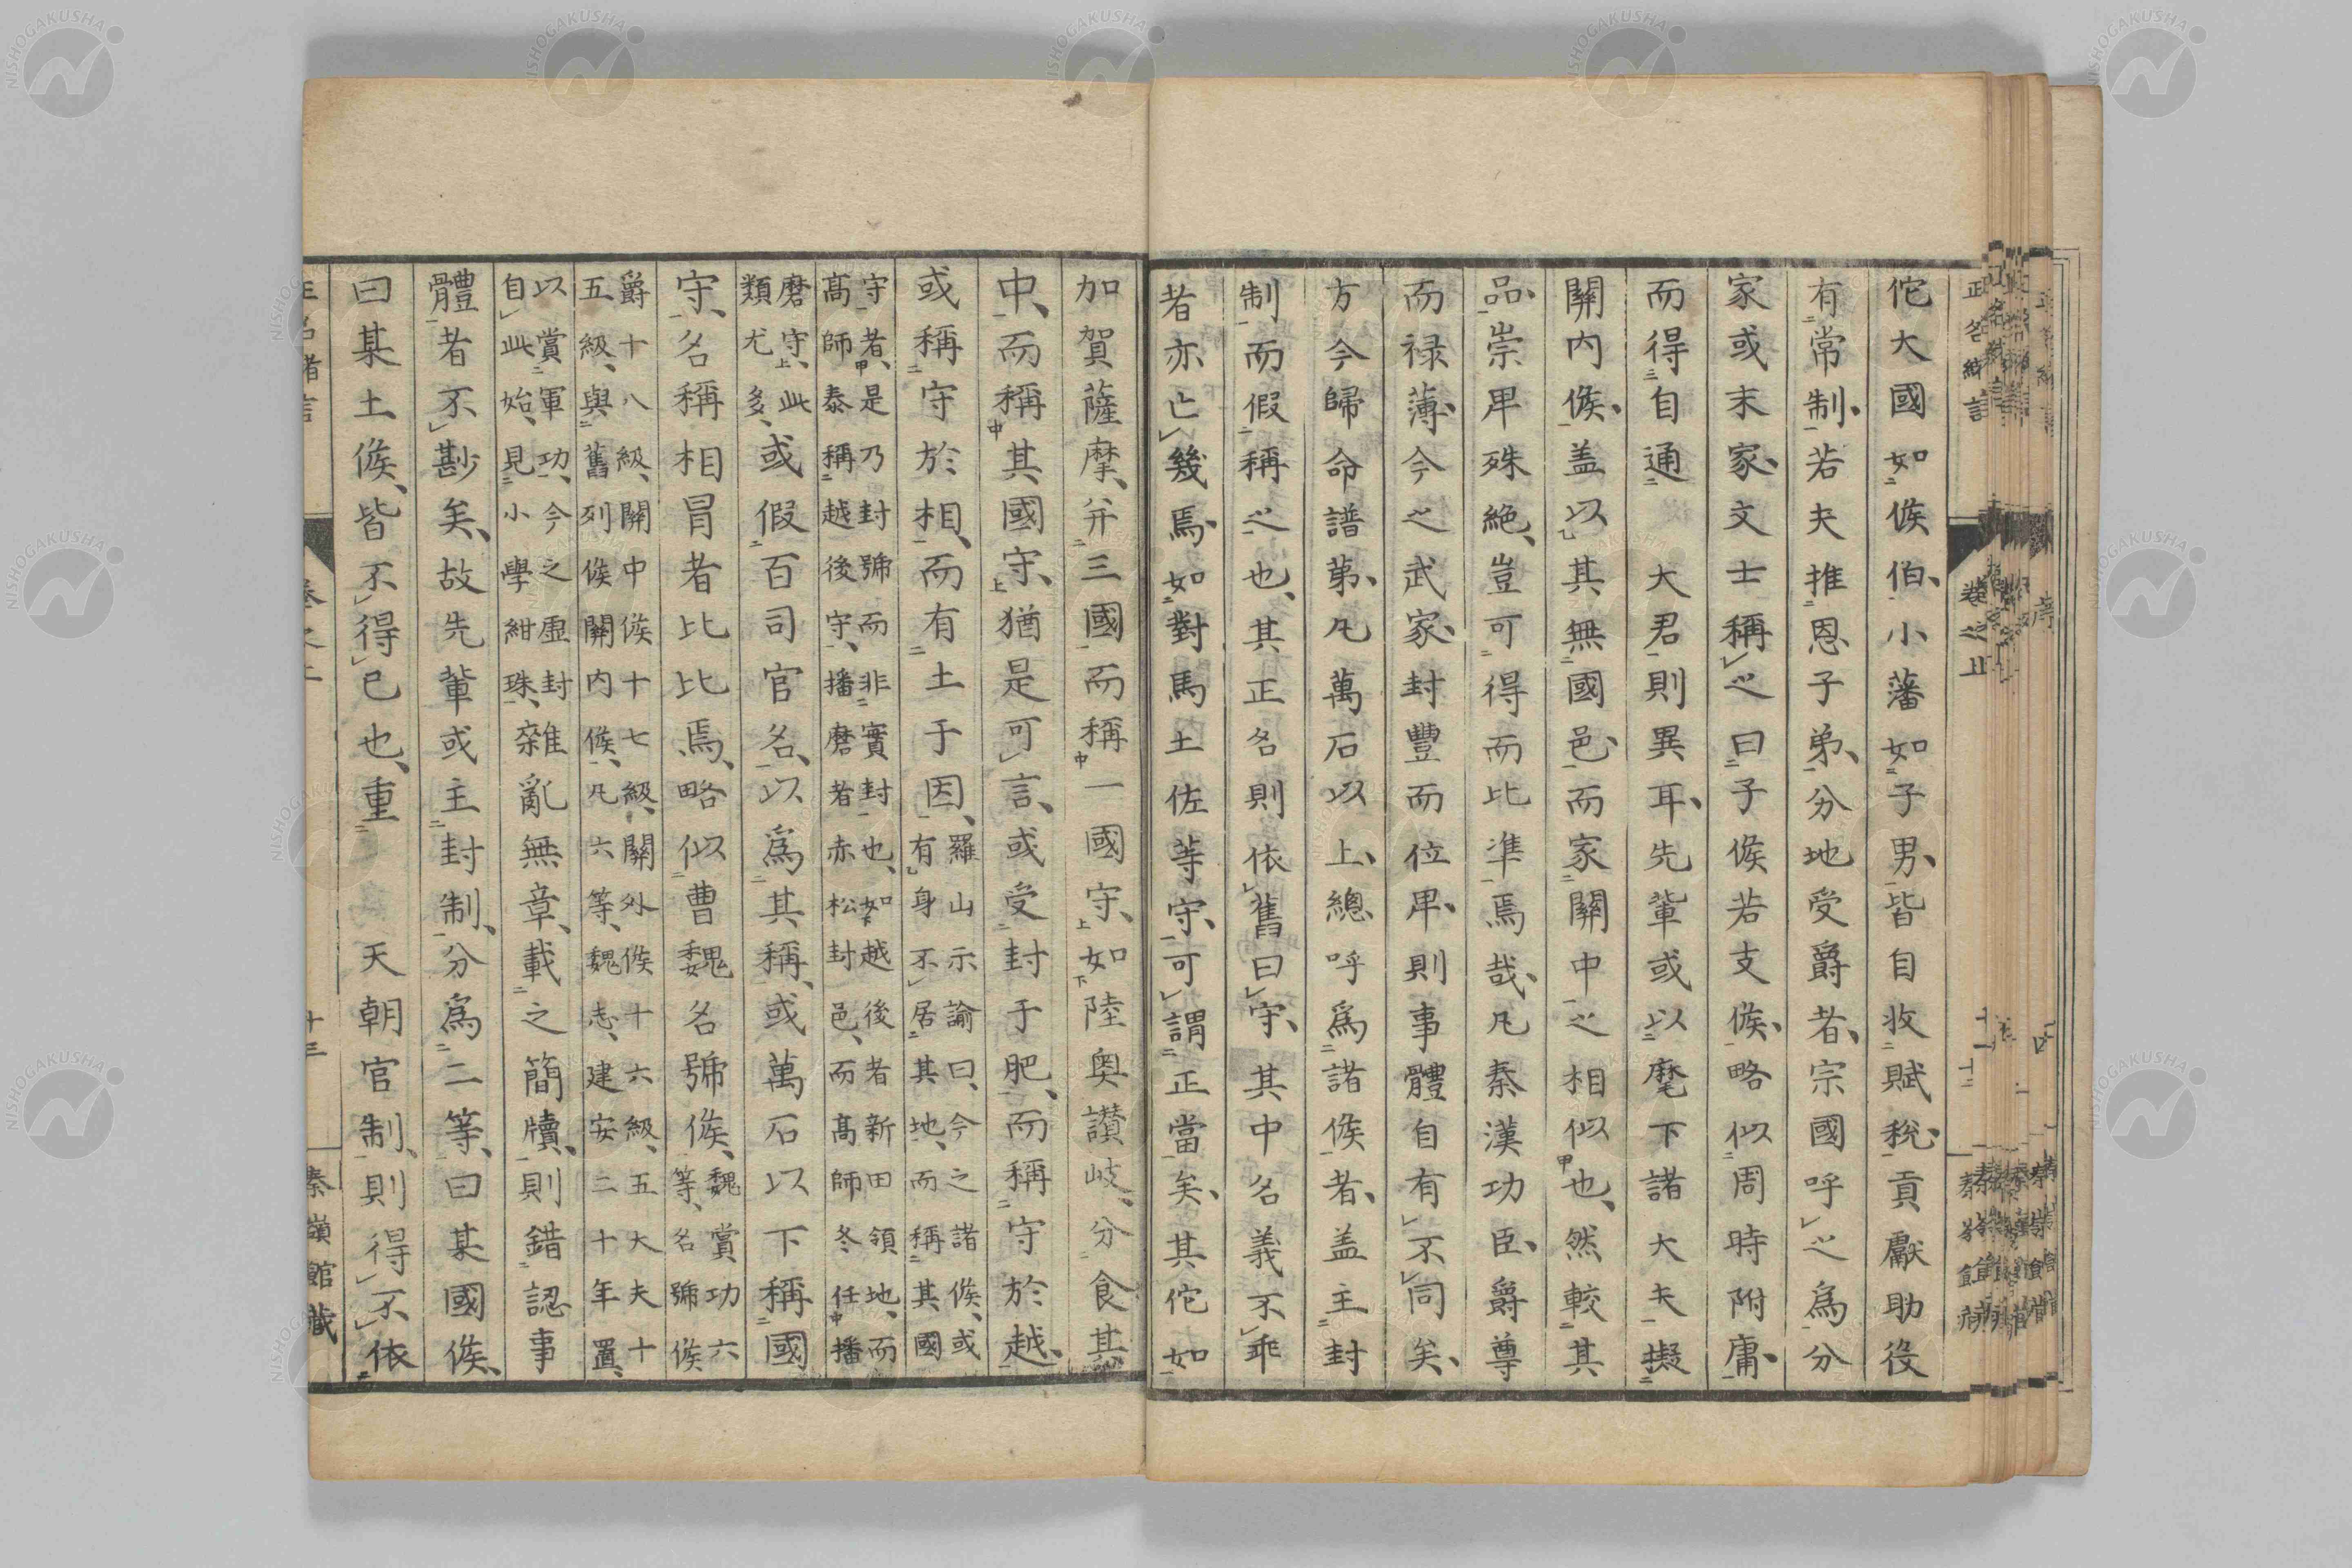 佗大國如侯伯、小藩如子男、皆自收賦稅、貢獻助役
有常制、若夫推恩子弟、分地受爵者、宗國呼之爲分
家或末家、文士稱之曰子侯若支侯、略似周時附庸、
而得自通　大君則異耳、先輩或以麾下諸大夫擬
關內侯、盖以其無國邑、而家關中之相似也、然較其
品、崇卑殊絶、豈可得而比準焉哉、凡秦漢功臣、爵尊
而禄薄、今之武家、封豐而位卑、則事體自有不同矣、
方今歸命譜第、凡萬石以上、總呼爲諸侯者、盖主封
制而假稱之也、其正名則依舊曰守、其中名義不乖
者亦亡幾焉、如對馬土佐等守、可謂正當矣、其佗如
加賀薩摩、并三國而稱一國守、如陸奧讃岐、分食其
中、而稱其國守、猶是可言、或受封于肥、而稱守於越、
或稱守於相、而有土于因、羅山示諭曰、今之諸侯、或有身不居其地、而稱其國
守者、是乃封號而非實封也、如越後者新田領地、而高師泰稱越後守、播磨者赤松封邑、而高師冬任播
磨守、此類尤多、或假百司官名、以爲其稱、或萬石以下稱國
守、名稱相冒者比比焉、略似曹魏名號侯、魏賞功六等、名號侯
爵十八級、關中侯十七級、關外侯十六級、五大夫十五級、與舊列侯關內侯、凡六等、魏志、建安二十年置、
以賞軍功、今之虛封自此始、見小學紺珠、雜亂無章、載之簡牘、則錯認事
體者不尠矣、故先輩或主封制、分爲二等、曰某國侯、
曰某土侯、皆不得已也、重　天朝官制、則得不依
正名緒言
卷之上
秦嶺館藏